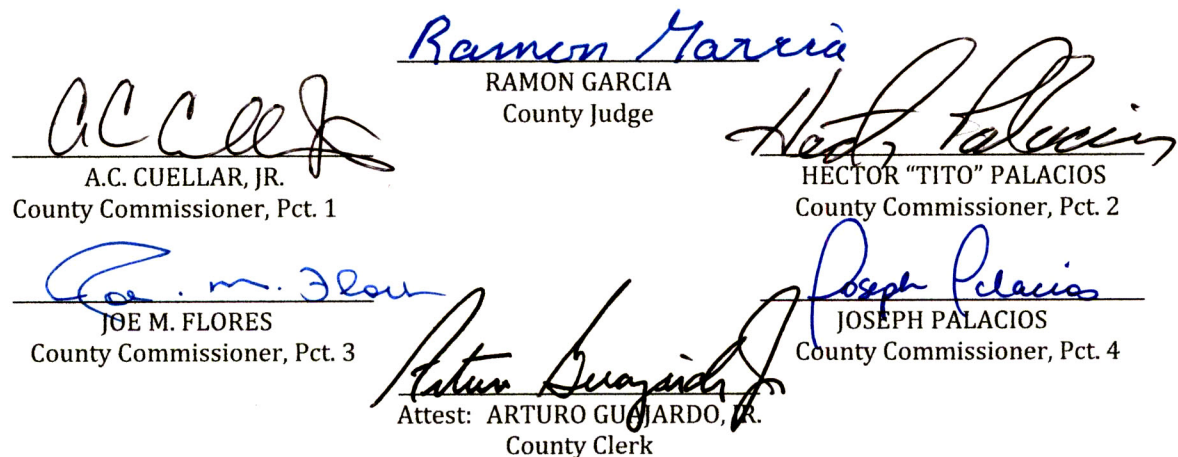 Ramon Garcia
RAMON GARCIA
County Judge
A C Cuellar Jr
A.C. CUELLAR, JR.
County Commissioner, Pct. 1
Hector Palacios
HECTOR “TITO” PALACIOS
County Commissioner, Pct. 2
Joe. M. Flores
JOE M. FLORES
County Commissioner, Pct. 3
Joseph Palacios
JOSEPH PALACIOS
County Commissioner, Pct. 4
Arturo Guajardo Jr
Attest: ARTURO GUAJARDO, JR.
County Clerk